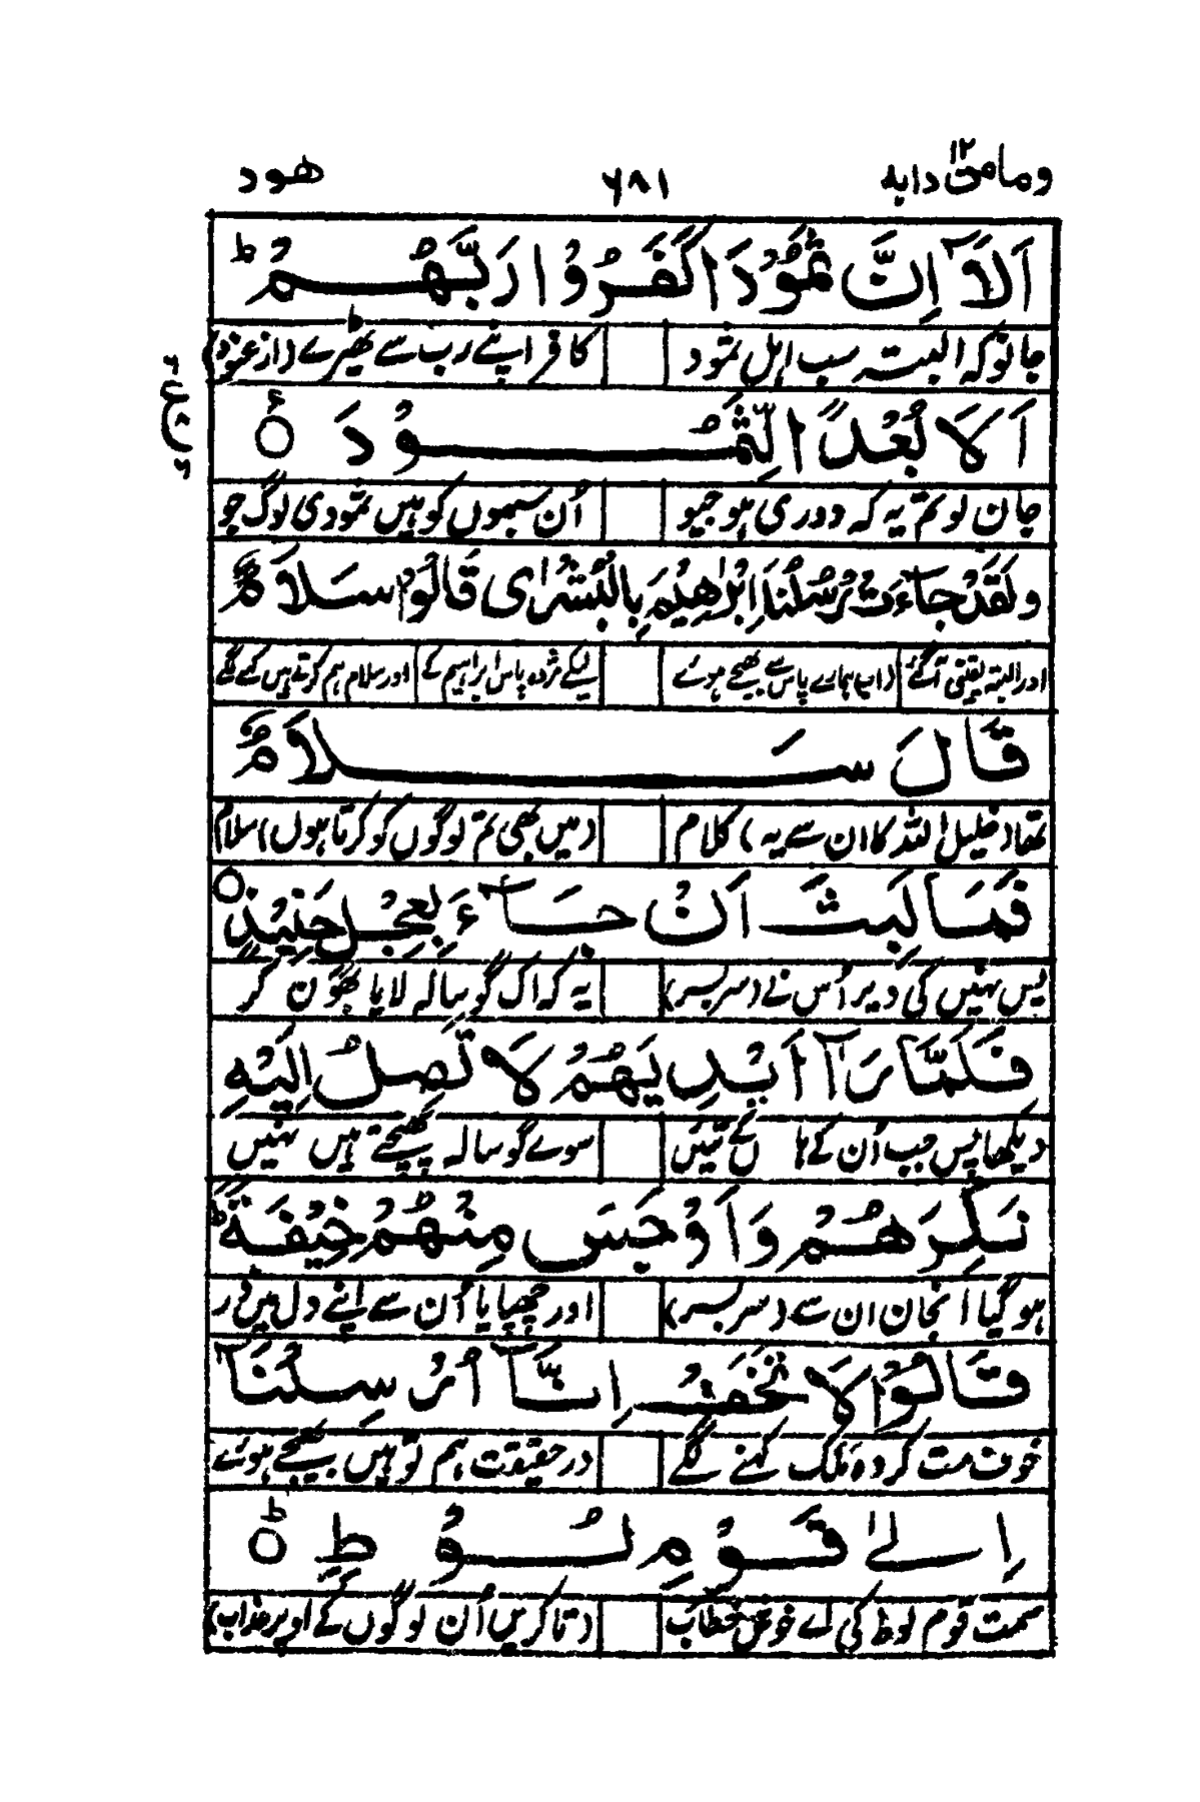 ومامن دابہ ۱۲ ۶۸۱ ھود
اَلَآ اِنَّ ثَمُوْدَا۟ كَفَرُوْا رَبَّهُمْ ؕ
جانو کہ البتہ سب اہلِ ثمود کافر اپنے رب سے پھیرے (از عنود)
اَلَا بُعْدًا لِّثَمُوْدَ ۟ ع
جان لو تم یہ کہ دوری ہوجیو اُن سبھوں کو ہیں ثمودی لوگ جو
وَلَقَدْ جَآءَتْ رُسُلُنَآ اِبْرٰهِيْمَ بِالْبُشْرٰى قَالُوْا سَلَامًا
اور البتہ یقینی آگئے (اب ہمارے پاس سے بھیجے ہوئے لیکے مژدہ پاس ابراہیم کے اور سلام ہم کرتے ہیں کہنے لگے
قَالَ سَلَامٌ
تھا (خلیل اللہ کا ان سے یہ) کلام (میں بھی تم لوگوں کو کرتا ہوں) سلام
فَمَا لَبِثَ اَنْ جَآءَ بِعِجْلٍ حَنِيْذٍ ۟
پس نہیں کی دیر اُس نے (سر بسر) یہ کہ اک گوسالہ لایا بھون کر
فَلَمَّا رَاٰۤ اَيْدِيَهُمْ لَا تَصِلُ اِلَيْهِ
دیکھا پس جب اُن کے ہا کے تئیں سوئے گوسالہ پہنچتے ہیں نہیں
نَكِرَهُمْ وَاَوْجَسَ مِنْهُمْ خِيْفَةً ؕ
ہو گیا انجان ان سے (سر بسر) اور چھپایا اُن سے اپنے دل میں ڈر
قَالُوْا لَا تَخَفْ اِنَّآ اُرْسِلْنَآ
خوف مت کر وہ ملک کہنے لگے درحقیقت ہم تو ہیں بھیجے ہوئے
اِلٰى قَوْمِ لُوْطٍ ۟ؕ
سمت قوم لوط کی اے خوش خطاب (تا کریں اُن لوگوں کے اوپر عذاب)